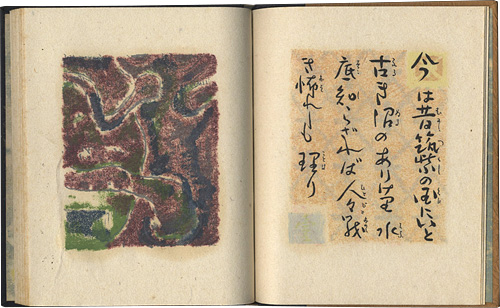 今は昔筑紫の国にいと
古き沼のありけり 水
底知らざれば人々戦
き怖れしも理り